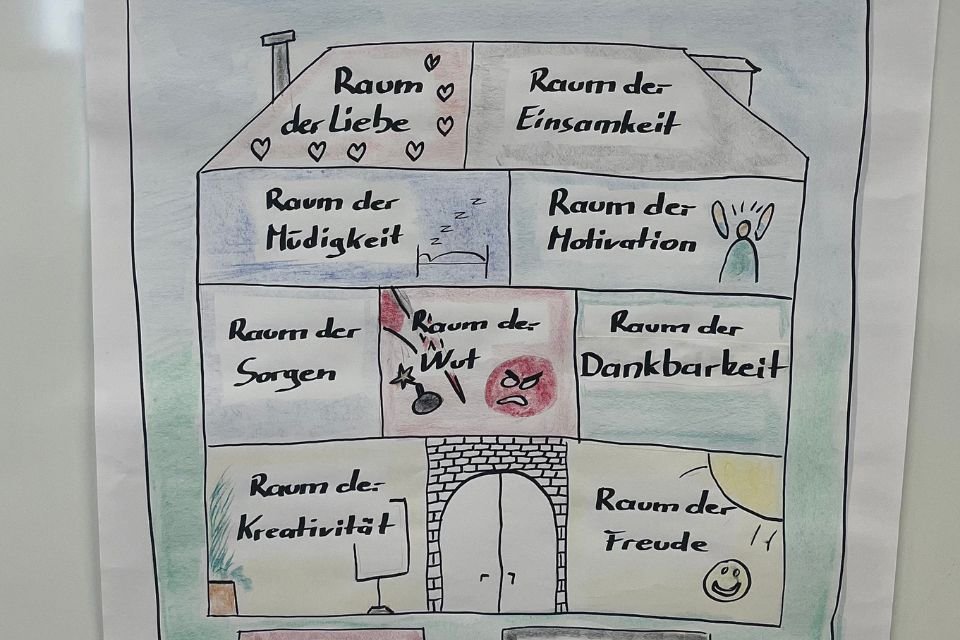 Raum
der Liebe
Raum der
Einsamkeit
Raum der
Müdigkeit
z z z z
Raum der
Motivation
Raum der
Sorgen
Raum der
Wut
Raum der
Dankbarkeit
Raum der
Kreativität
Raum der
Freude